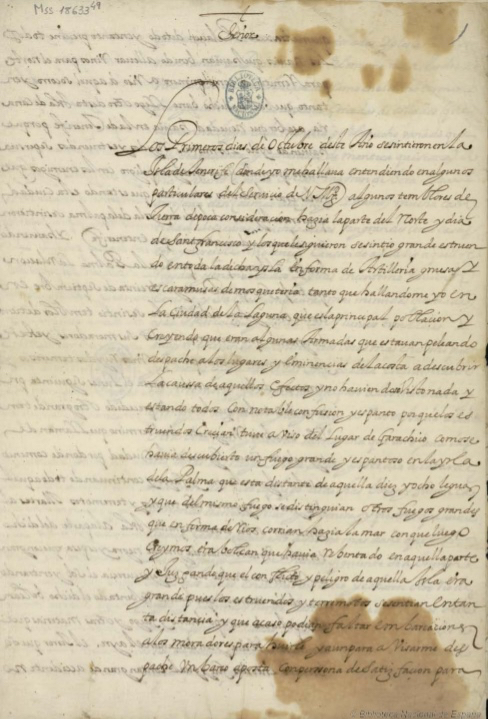 Mss 18633 49
1
Señor
Los Primeros dias de Octubre deste Año se sintieron en la
Isla de donde yo me hallaua entendiendo en algunos
particulares del seruicio de V. Mg algunos temblores de
tierra de poca consideracion hazia la parte del Norte y dia
de Sant francisco y los que le siguieron se sintio grande estruen
do en toda la dicha ysla en forma de Artilleria gruesa y
escaramusa de mosqueteria tanto que hallandome yo en
La Ciudad de la Laguna que es la principal poblacion y
Creyendo que eran algunas Armadas que estauan peleando
despache a los lugares y eminencias de la costa a descubrir
La caussa de aquellos efectos y no hauiendose visto nada y
estando todos con notable confusion y espanto porque los es
truendos Crecian tuve aviso del Lugar de Garachico como se
hauia descubierto un fuego grande y espantoso en la ysla
de la Palma que esta distante de aquella diez y ocho leguas
y que del mismo fuego se distinguian otros fuegos grandes
que en forma de Rios corrian hazia la mar con que luego
Creymos era bolcan que hauia rebentado en aquella parte
y Juzgando que el conflicto y peligro de aquella Isla era
grande pues los estruendos y terremotos se sentian en tan
ta distancia y que acaso podrian faltar embarcaciones
a los moradores para huirlo y aun para avisarme des
pache un barco aposta con persona de satisfacion para
Biblioteca Nacional de España